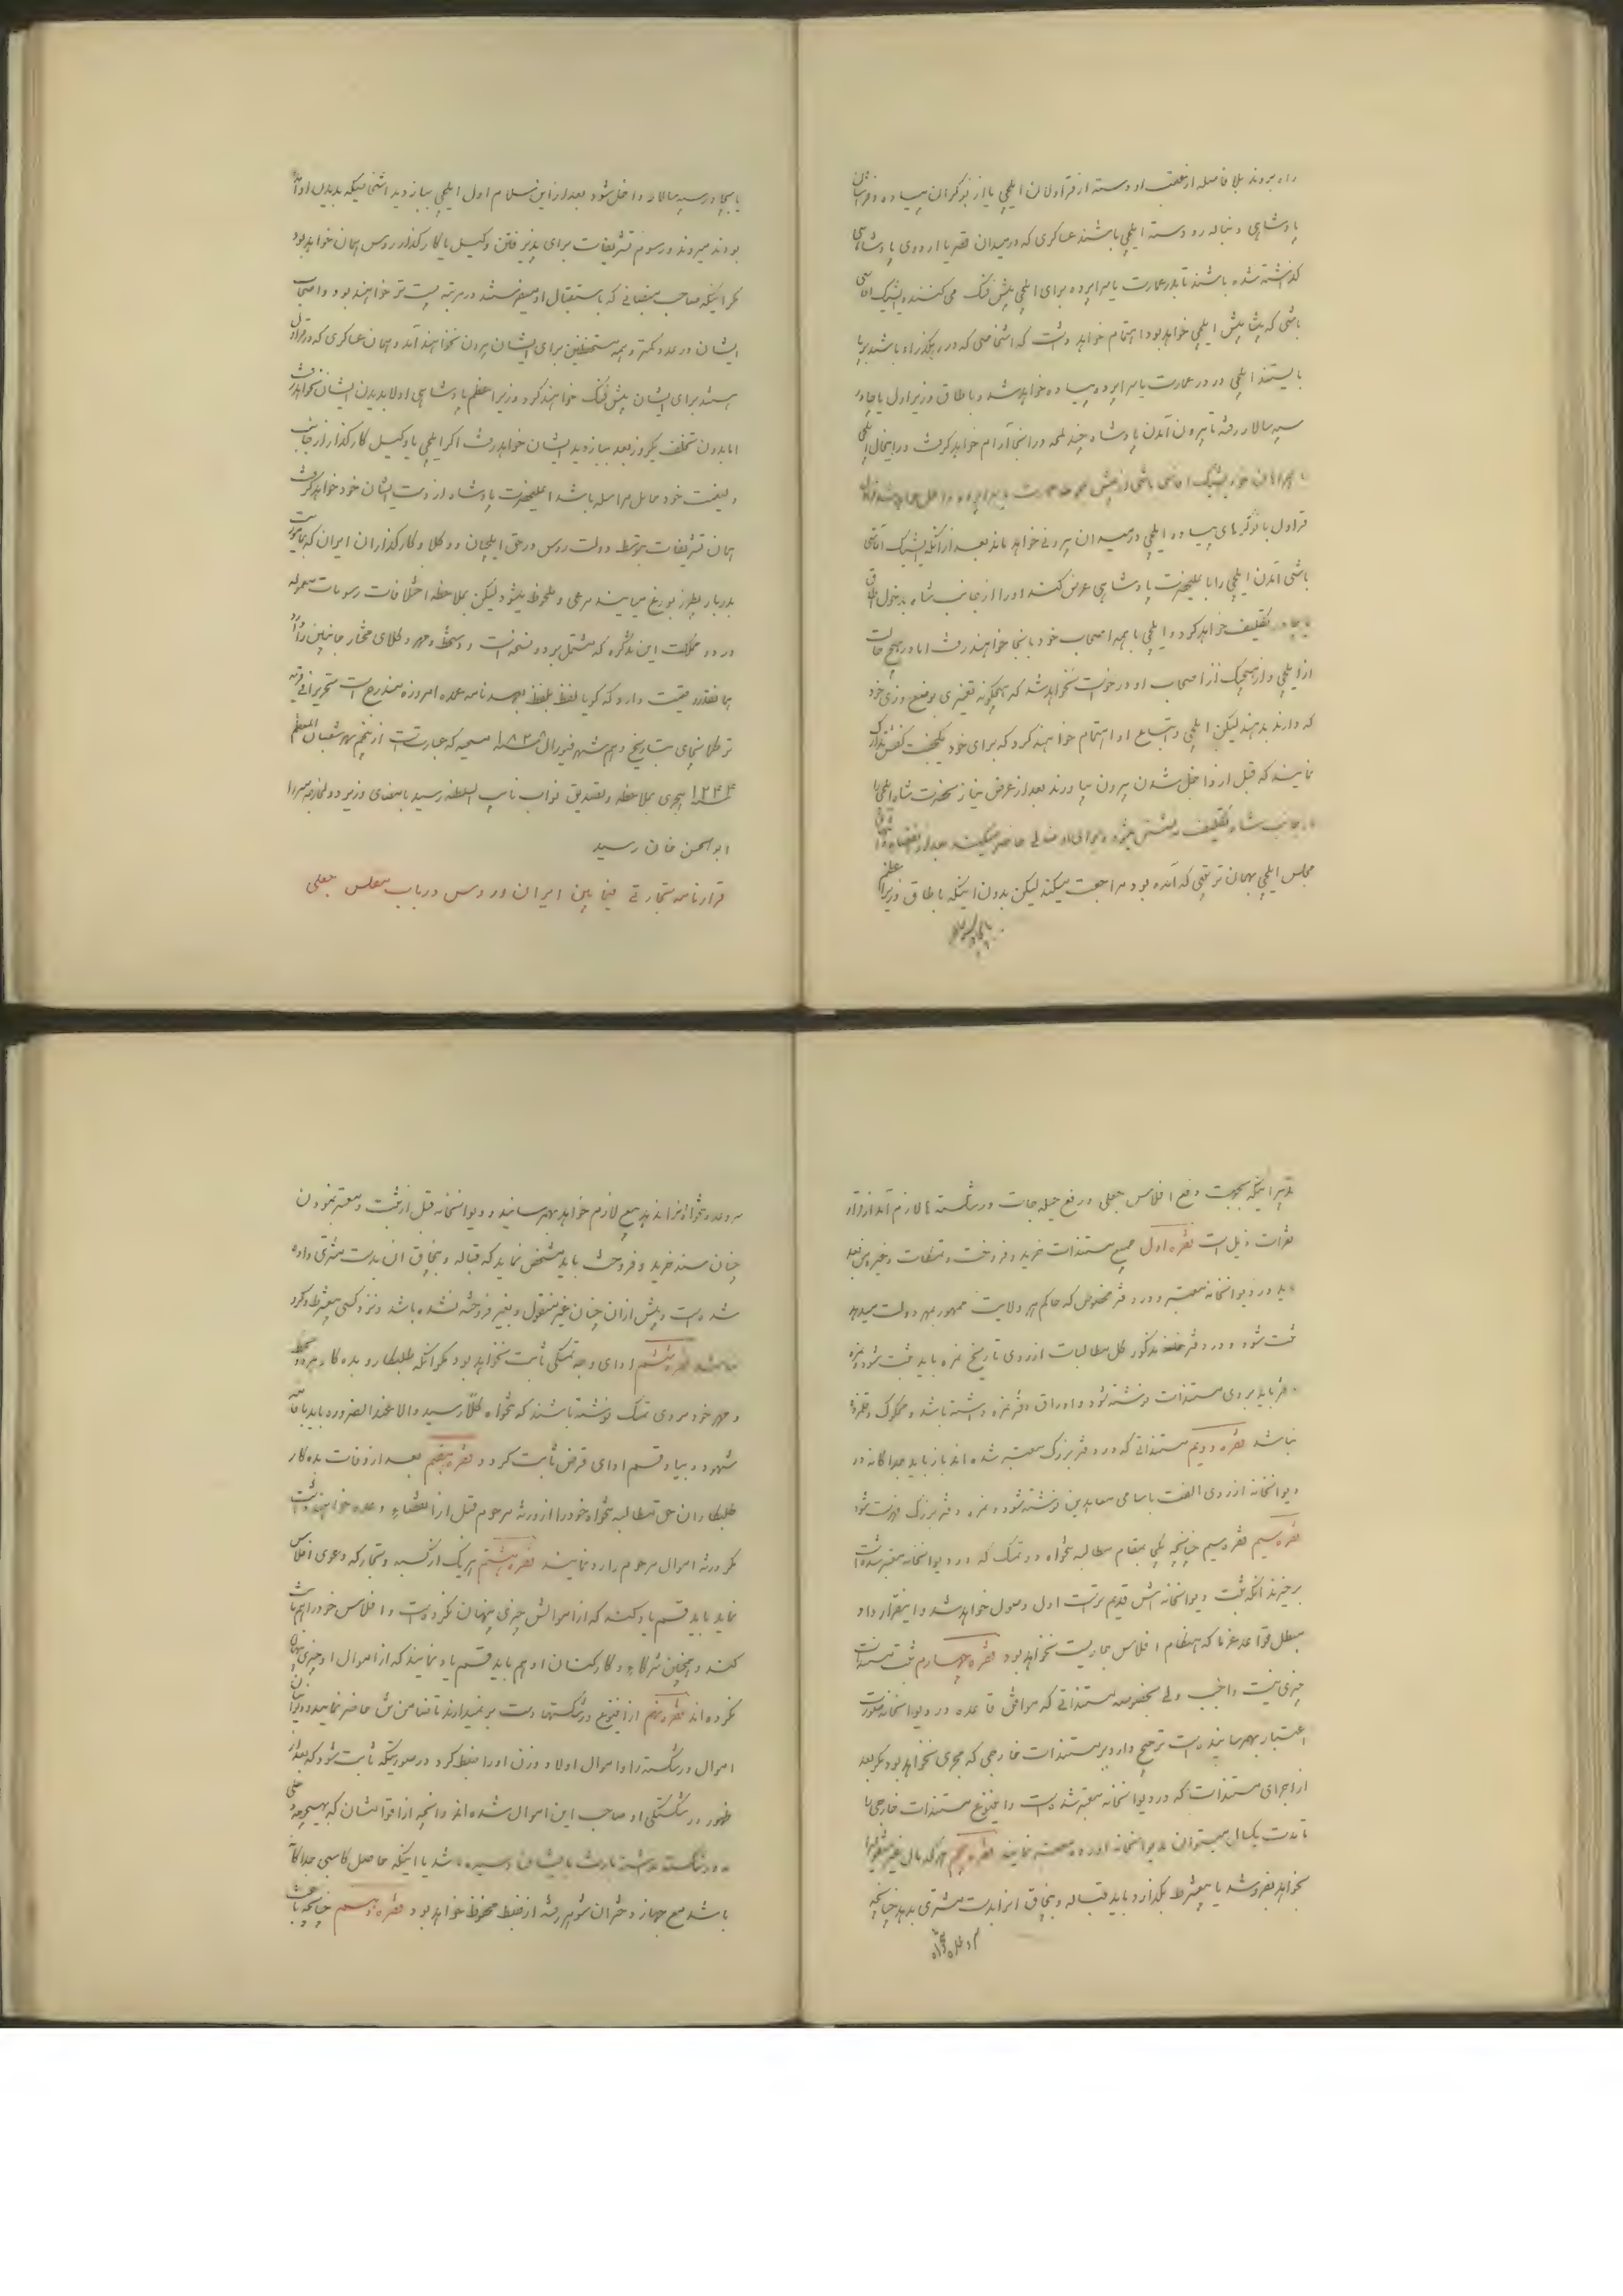 راه میروند بلا فاصله از عقب او دسته از قراولان ایلچی یا از نوکران پیاده و فراشان
پادشاهی و دنباله رو دسته ایلچی باشند عساکری که در میدان قصر یا اردوی پادشاهی
گذاشته شده باشند تا بدر عمارت یا سراپرده برای ایلچی پیش فنگ می کنند و ایشیک اقاسی
باشی که پیشاپیش ایلچی خواهد بود اهتمام خواهد داشت که اشخاصی که در رهگذر او باشند برپا
بایستند ایلچی در در عمارت یا سراپرده پیاده خواهد شد و باطاق وزیر اول یا چادر
سپهسالار رفته تا بیرون آمدن پادشاه چند لمحه در انجا آرام خواهد گرفت در اینحال ایلچی
با همراهان خود ایشیک اقاسی باشی از پیش
قراول با نوکرهای پیاده ایلچی در میدان بیرونی خواهد ماند بعد از آنکه ایشیک آقاسی
باشی آمدن ایلچی را باعلیحضرت پادشاهی عرض کند او را از جانب شاه بدخول اطاق
یا چادر تکلیف خواهد کرد و ایلچی با همه اصحاب خود بانجا خواهند رفت اما در هیچ حالت
از ایلچی و از هیچیک از اصحاب او درخواست نخواهد شد که هیچگونه تغییری بوضع و زی خود
که دارند بدهند لیکن ایلچی و اتباع او اهتمام خواهند کرد که برای خود یکجفت کفش تدارک
نمایند که قبل از داخل شدن بیرون بیاورند بعد از عرض نیاز بحضرت شاه ایلچی را
از جانب شاه تکلیف نشستن میشود و برای او صندلی حاضر میکنند بعد از انقضاء
مجلس ایلچی بهمان ترتیبی که آمده بود مراجعت میکند لیکن بدون اینکه باطاق وزیر اعظم
یا چادر سپهسالار
یا چادر سپهسالار داخل شود بعد از این سلام اول ایلچی ببازدید اشخاصیکه بدیدن او آمده
بودند میروند و رسوم تشریفات برای پذیرفتن وکیل یا کارگذار روس همان خواهد بود
مگر اینکه صاحب منصبانی که باستقبال او میفرستند در مرتبه پست تر خواهند بود و اصحاب
ایشان در عدد کمتر و همه مستحفظین برای ایشان بیرون نخواهند آمد و همان عساکری که در قراول
هستند برای ایشان پیش فنگ خواهند کرد وزیر اعظم پادشاهی اولا بدیدن ایشان نخواهد رفت
اما بدون تخلف یکروز بعد ببازدید ایشان خواهد رفت اگر ایلچی یا وکیل کارگذار از جانب
ولینعمت خود حامل مراسله باشد اعلیحضرت پادشاه از دست ایشان خود خواهد گرفت
همان تشریفات بتوسط دولت روس در حق ایلچیان و وکلا و کارگذاران ایران که بماموریت
بدربار پطرزبورغ میایند مرعی و ملحوظ میشود لیکن بملاحظه اختلافات رسومات معموله
در دو مملکت این تذکره که مشتمل بر دو نسخه است و دستخط و مهر وکلای مختار جانبین دارد
همانقدر قیمت دارد که گویا لفظ بلفظ بعهدنامه عمده امروزه مندرج است تحریرا فی قریه
ترکمانچای بتاریخ دهم شهر فیورال ۱۸۲۸ مسیحیه که عبارتست از پنجم شهر شعبان المعظم
سنه ۱۲۴۳ هجری بملاحظه و تصدیق نواب نایب السلطنه رسید بامضای وزیر دول خارجه میرزا
ابوالحسن خان رسید
قرارنامه تجارتی فیما بین ایران و روس در باب مفلس جعلی
تدبیر اینکه بجهت دفع افلاس جعلی و رفع حیله جات ورشکسته ها لازم آمد از قرار
فقرات ذیل است فقره اول جمیع مستندات خرید و فروخت و تمسکات و غیره من بعد
باید در دیوانخانه معتبر و در دفتر مخصوص که حاکم هر ولایت ممهور بمهر دولت میدهد
ثبت شود و در دفتر مذکور کل مطالبات از روی تاریخ نمره باید ثبت شود و نمره
دفتر باید بر روی مستندات نوشته شود و اوراق دفتر نمره داشته باشد و محکوک و قلمزده
نباشد فقره دویم مستنداتی که در دفتر بزرگ معتبر شده اند باز باید جداگانه در
دیوانخانه از روی الفت باسامی معاهدین نوشته شود و نمره دفتر بزرگ فهرست شود
فقره سیم فقره سیم چنانچه طلبی بمقام مطالبه تنخواه دو تمسک که در دیوانخانه معتبر شده است
برخیزند آنکه ثبت دیوانخانه اش قدیم تر است اول وصول خواهد شد و اینقرار داد
مبطل قواعد غرما که انتظام افلاس جاریست نخواهد بود فقره چهارم ثبت مستندات
چیزی نیست واجب ولی بخصوصه مستنداتی که موافق قاعده در دیوانخانه صورت
اعتبار بهمرسانیده است ترجیح دارد بر مستندات خارجی که مجری نخواهد بود مگر بعد
از اجرای مستندات که در دیوانخانه معتبر شده است و اینوع مستندات خارجی را
تا مدت یکسال میتوان بدیوانخانه آورده معتبر نمایند فقره پنجم هر که مالی غیر منقول را
بخواهد بفروشد یا بشرط بگذارد باید قباله و بنچاق آنرا بدست مشتری بدهد چنانچه
سر وعده تنخواه نرساند بیع لازم خواهد بهمرسانید و دیوانخانه قبل از ثبت و معتبر نمودن
چنان سند خرید و فروخت باید مشخص نماید که قباله و بنچاق ان بدست مشتری داده
شده است و پیش از ان چنان غیر منقول و بغیر فروخته نشده باشد و نزد کسی بشرط و گرو
نباشد فقره ششم ادای وجه تمسکی ثابت نخواهد بود مگر آنکه طلبکار و بده کار هر دو بخط
و مهر خود بر روی تمسک نوشته باشند که تنخواه کلاّ رسید و الا عند الضرور باید باقامه
شهود و بیا و قسم ادای قرض ثابت گردد فقره هفتم بعد از وفات بده کار
طلبکاران حق مطالبه تنخواه خود را از ورثه مرحوم قبل از انقضای وعده خواهند داشت
مگر ورثه اموال مرحوم را رد نمایند فقره هشتم هر یک از کسبه و تجار که دعوی افلاس
نماید باید قسم یاد کند که از اموالش چیزی پنهان نکرده است و افلاس خود را هم ثابت
کند و همچنین شرکاء و کارکنان او هم باید قسم یاد نمایند که از اموال او چیزی پنهان
نکرده اند فقره نهم از اینوع ورشکستها دست بر نمیدارند تا ضامن تن حاضر نمایند و دیوانیان
اموال ورشکسته را و اموال اولاد و زن او را ضبط کرد در صورتیکه ثابت شود که بعد از
ظهور ورشکستگی او صاحب این اموال شده اند و آنچه از اقوامشان که بهیچوجه دخلی
به ورشکسته نداشته بارث بایشان رسیده باشد یا اینکه حاصل کاسبی جداگانه
باشد مع جهاز دختران شوهر رفته از ضبط محفوظ خواهد بود فقره دهم چنانچه باعث